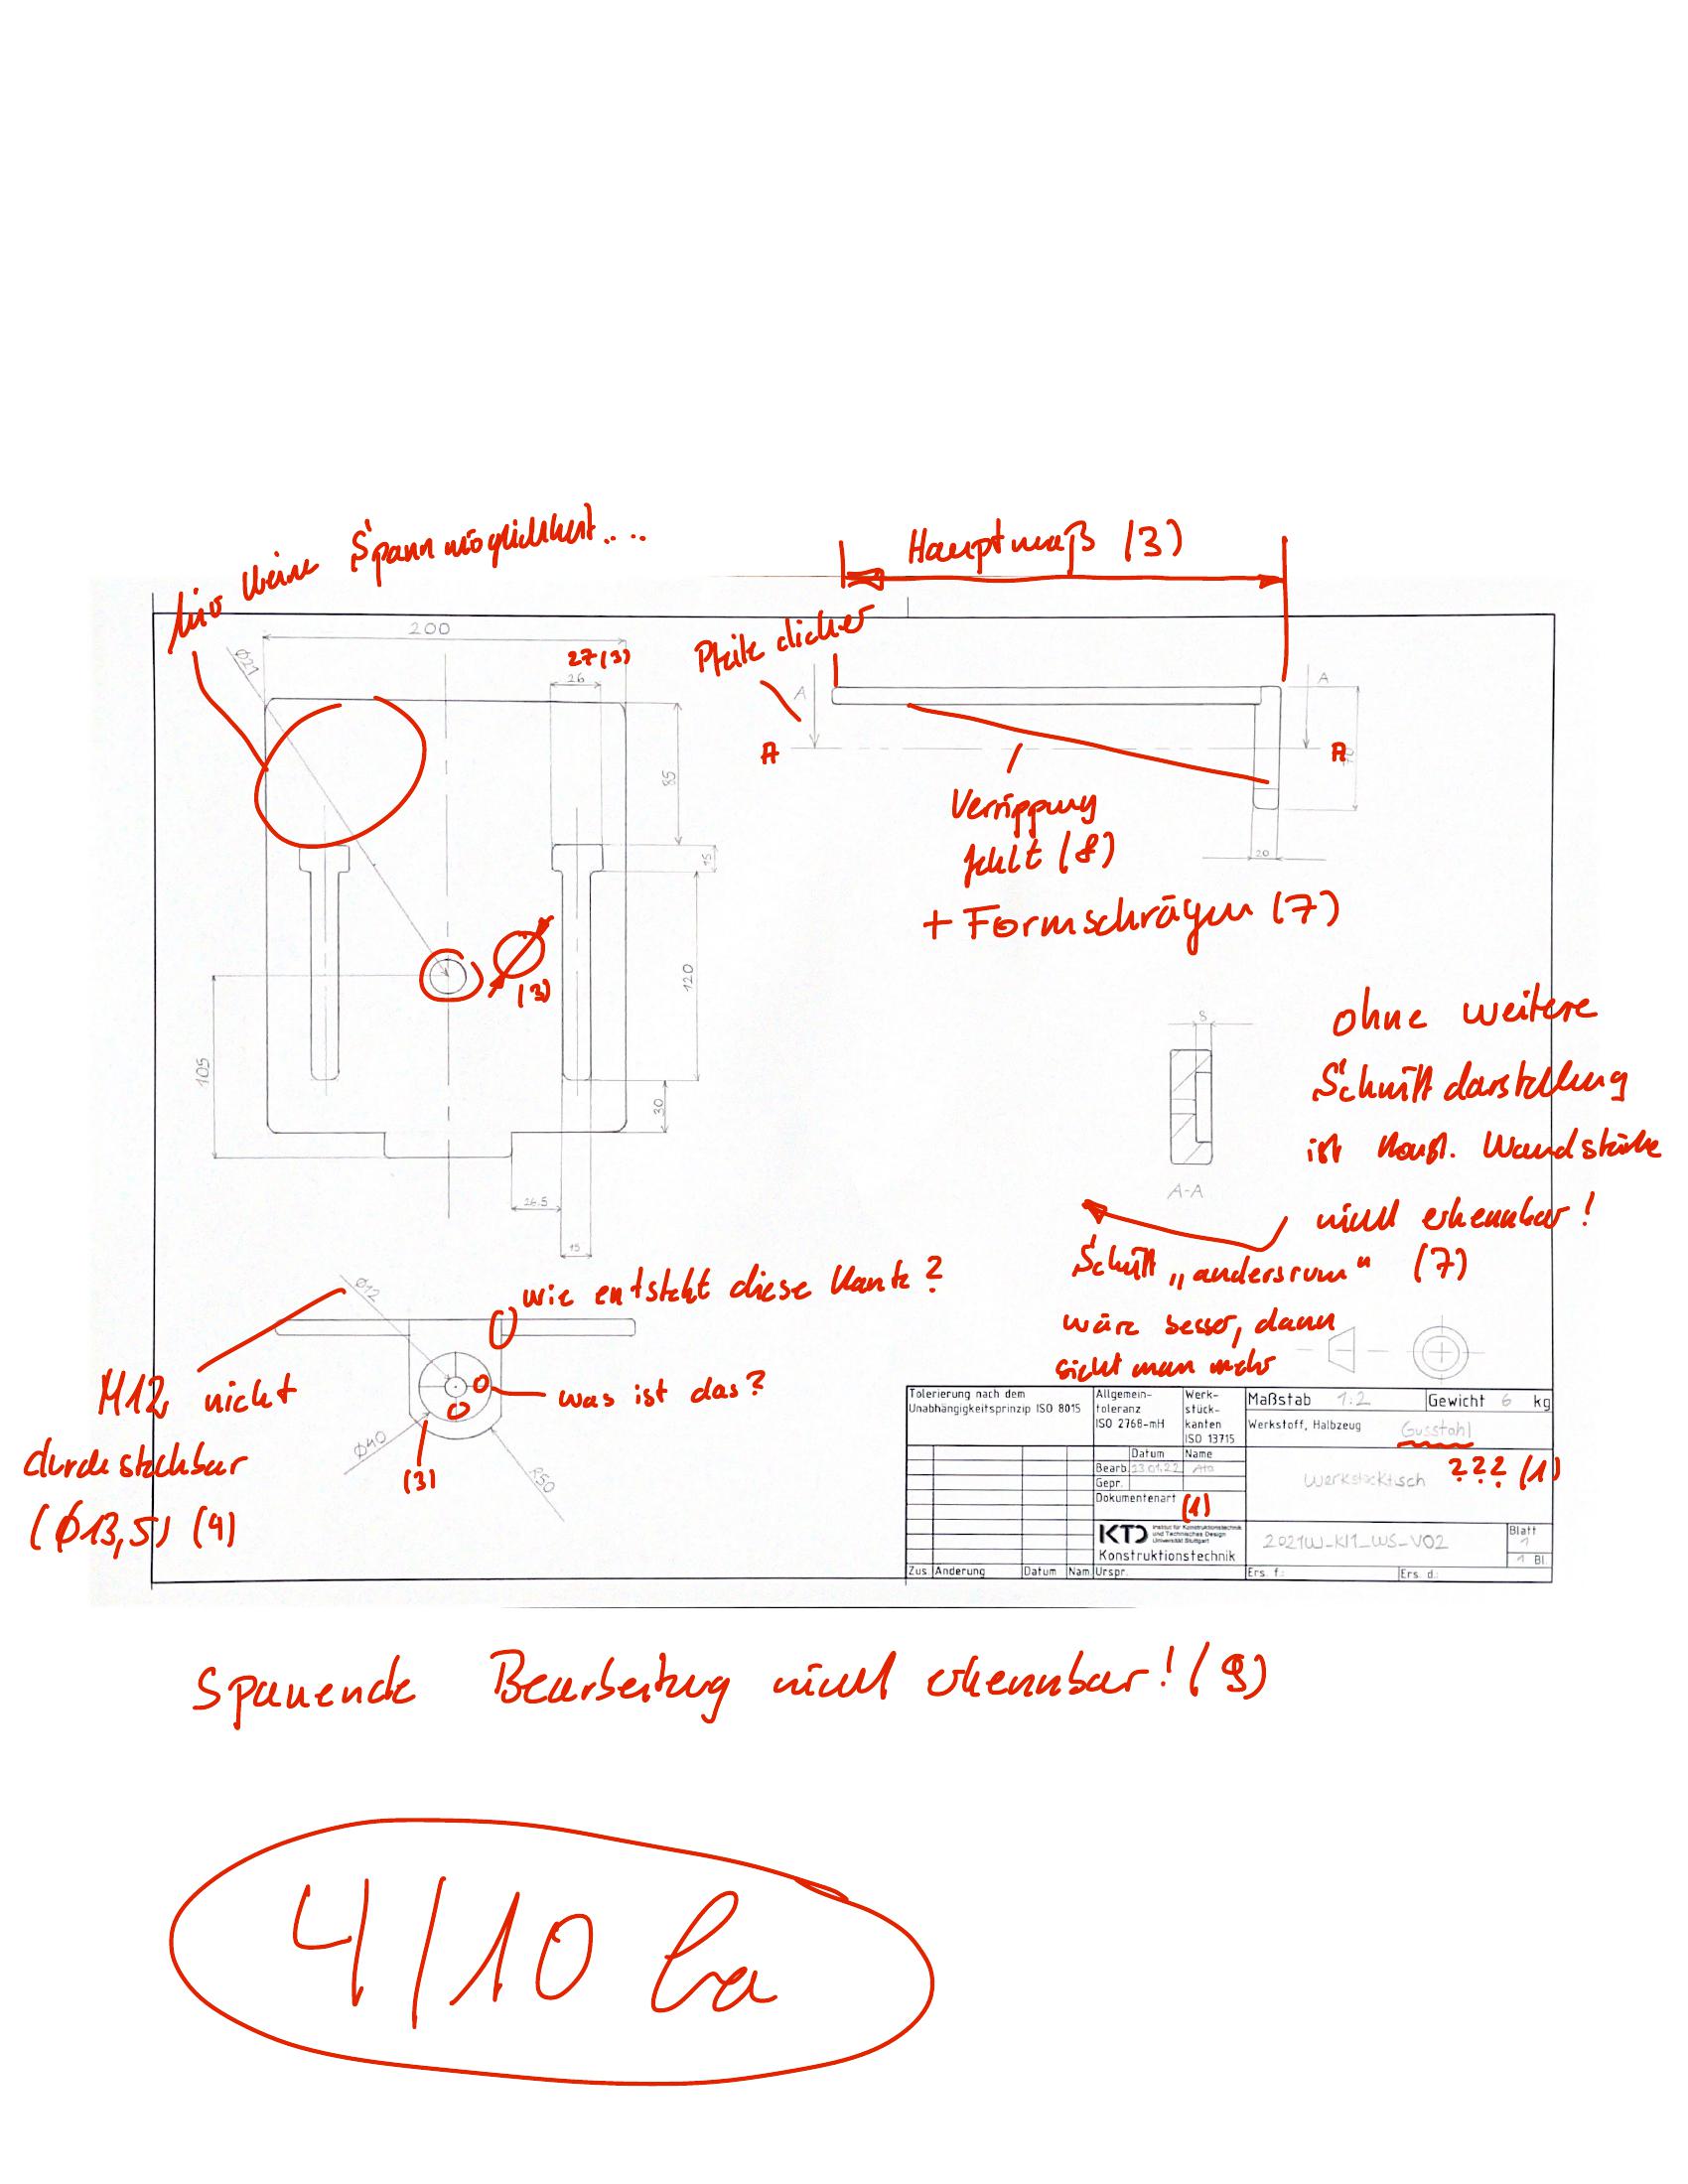 hier keine Spannmöglichkeit....
Hauptmaß (3)
200
27 (3)
26
Ø21
Pfeile dicker
A
A
A
A
85
70
20
Verrippung
fehlt (8)
+ Formschrägen (7)
15
(3)
120
105
30
26.5
15
S
A-A
ohne weitere
Schnittdarstellung
ist konst. Wandstärke
nicht erkennbar!
Schnitt „andersrum“ (7)
wäre besser, dann
sieht man mehr
wie entsteht diese Kante?
was ist das?
Ø12
M12 nicht
durchsteckbar
(Ø13,5) (4)
Ø40
(3)
R50
Tolerierung nach dem
Unabhängigkeitsprinzip ISO 8015
Allgemein-
toleranz
ISO 2768-mH
Werk-
stück-
kanten
ISO 13715
Maßstab 1:2
Gewicht 6 kg
Werkstoff, Halbzeug Gusstahl
??? (1)
Datum Name
Bearb. 23.01.22 Ata
Gepr.
Dokumentenart (1)
Werkstücktisch
KTD Institut für Konstruktionstechnik
und Technisches Design
Universität Stuttgart
Konstruktionstechnik
2021W_KI1_WS_V02
Blatt
1
1 Bl.
Zus Änderung Datum Nam. Urspr. Ers. f.: Ers. d.:
Spanende Bearbeitung nicht erkennbar! (9)
4/10